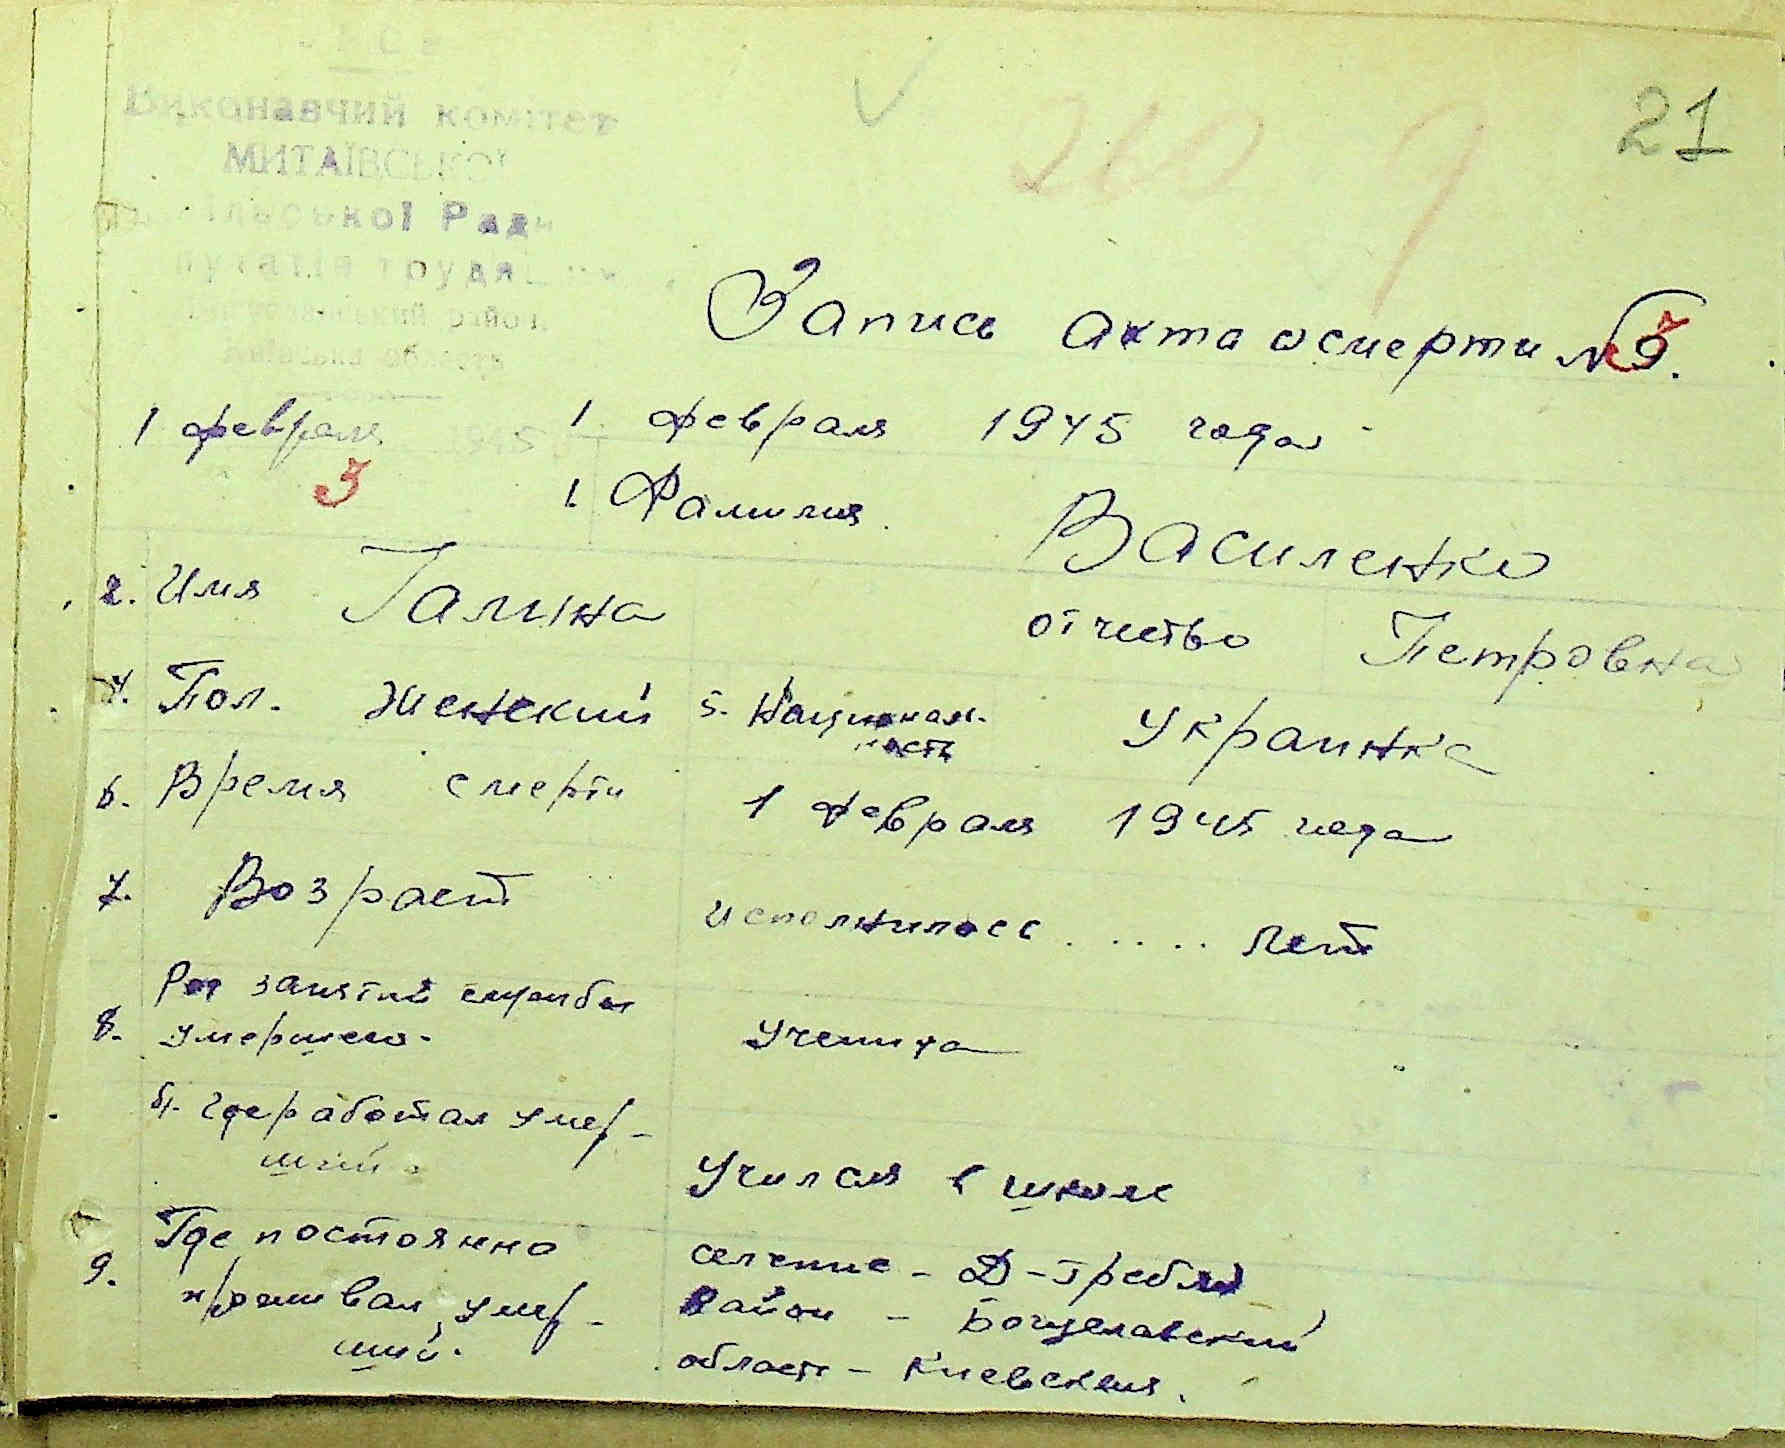 21
260
Виконавчий комітет
МИТАЇВСЬКОЇ
Ради
Запись акта о смерти № 3.
1 февраля
1 февраля 1945 года
3
1. Фамилия Василенко
2. Имя Галина отчество Петровна
4. Пол. женский 5. Националь-
ность Украинка
6. Время смерти 1 февраля 1945 года
7. Возраст исполнилосс ..... лет
8. Род занятий службы
умершего. ученица
б). где работал умер-
ший. Учился в школе
9. Где постоянно
проживал умер-
ший.
селение - Д-Гребля
Район - Богуславский
область - Киевская.